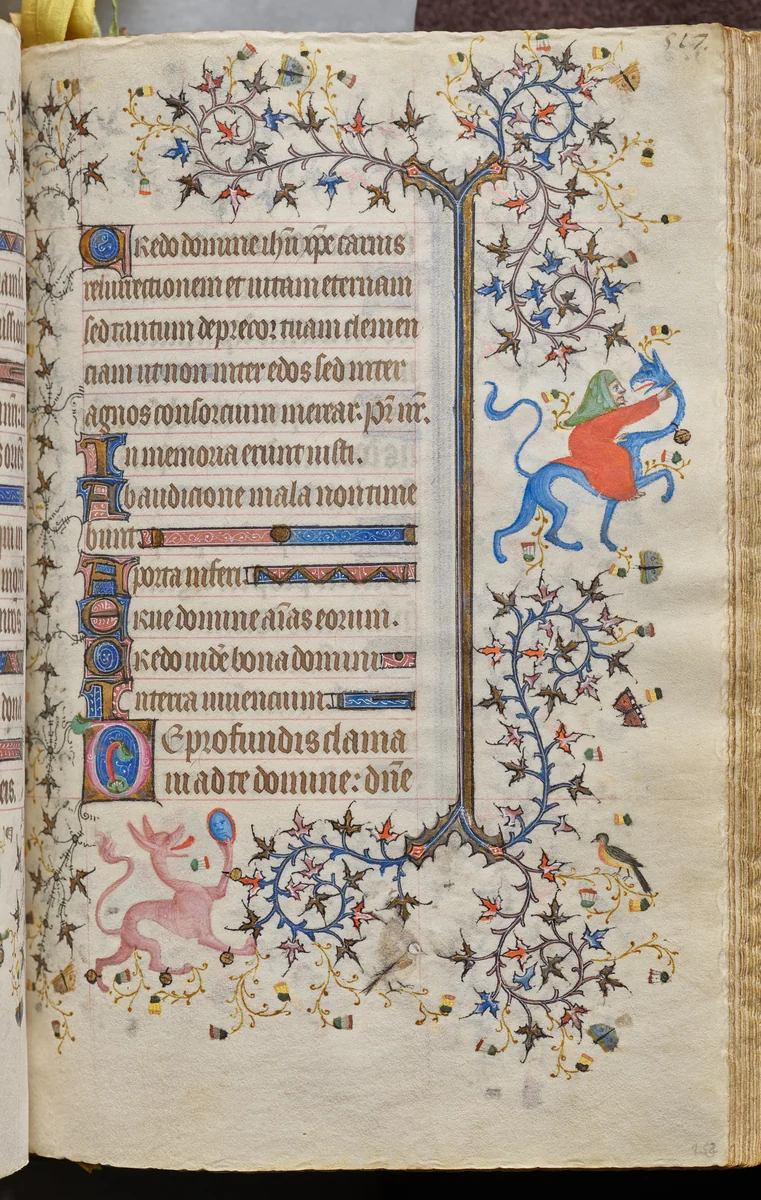 517.
Credo domine ihũ xp̃e carnis
resurrectionem et uitam eternam
sed tantum deprecor tuam clemen
ciam ut non inter edos sed inter
agnos consorcium merear. pr̃ nr̃.
In memoria erunt iusti.
Ab audicione mala non time
bunt
A porta inferi
Erue domine aĩas eorum.
Credo uidẽ bona domini
In terra uiuencium
De profundis clama
ui ad te domine: dñe